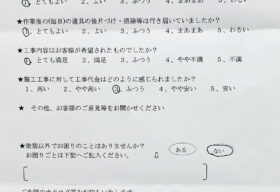 ①とてもよい 2、よい 3、ふつう 4、まあまあ 5、わるい
★作業後の(毎日)の道具の後片づけ・掃除等は行き届いていましたか?
①とてもよい 2、よい 3、ふつう 4、まあまあ 5、わるい
★工事内容はお客様が希望されたものでしたか?
①とても満足 2、満足 3、ふつう 4、やや不満 5、不満
★施工工事に対して工事代金はどのように感じられましたか?
1、高い 2、やや高い ③ふつう 4、やや安い 5、安い
★ その他、お客様のご意見等をお聞かせください
★塗装以外でお困りのことはありませんか? ある ない
お困りごとは下記へご記入ください。 ⇩